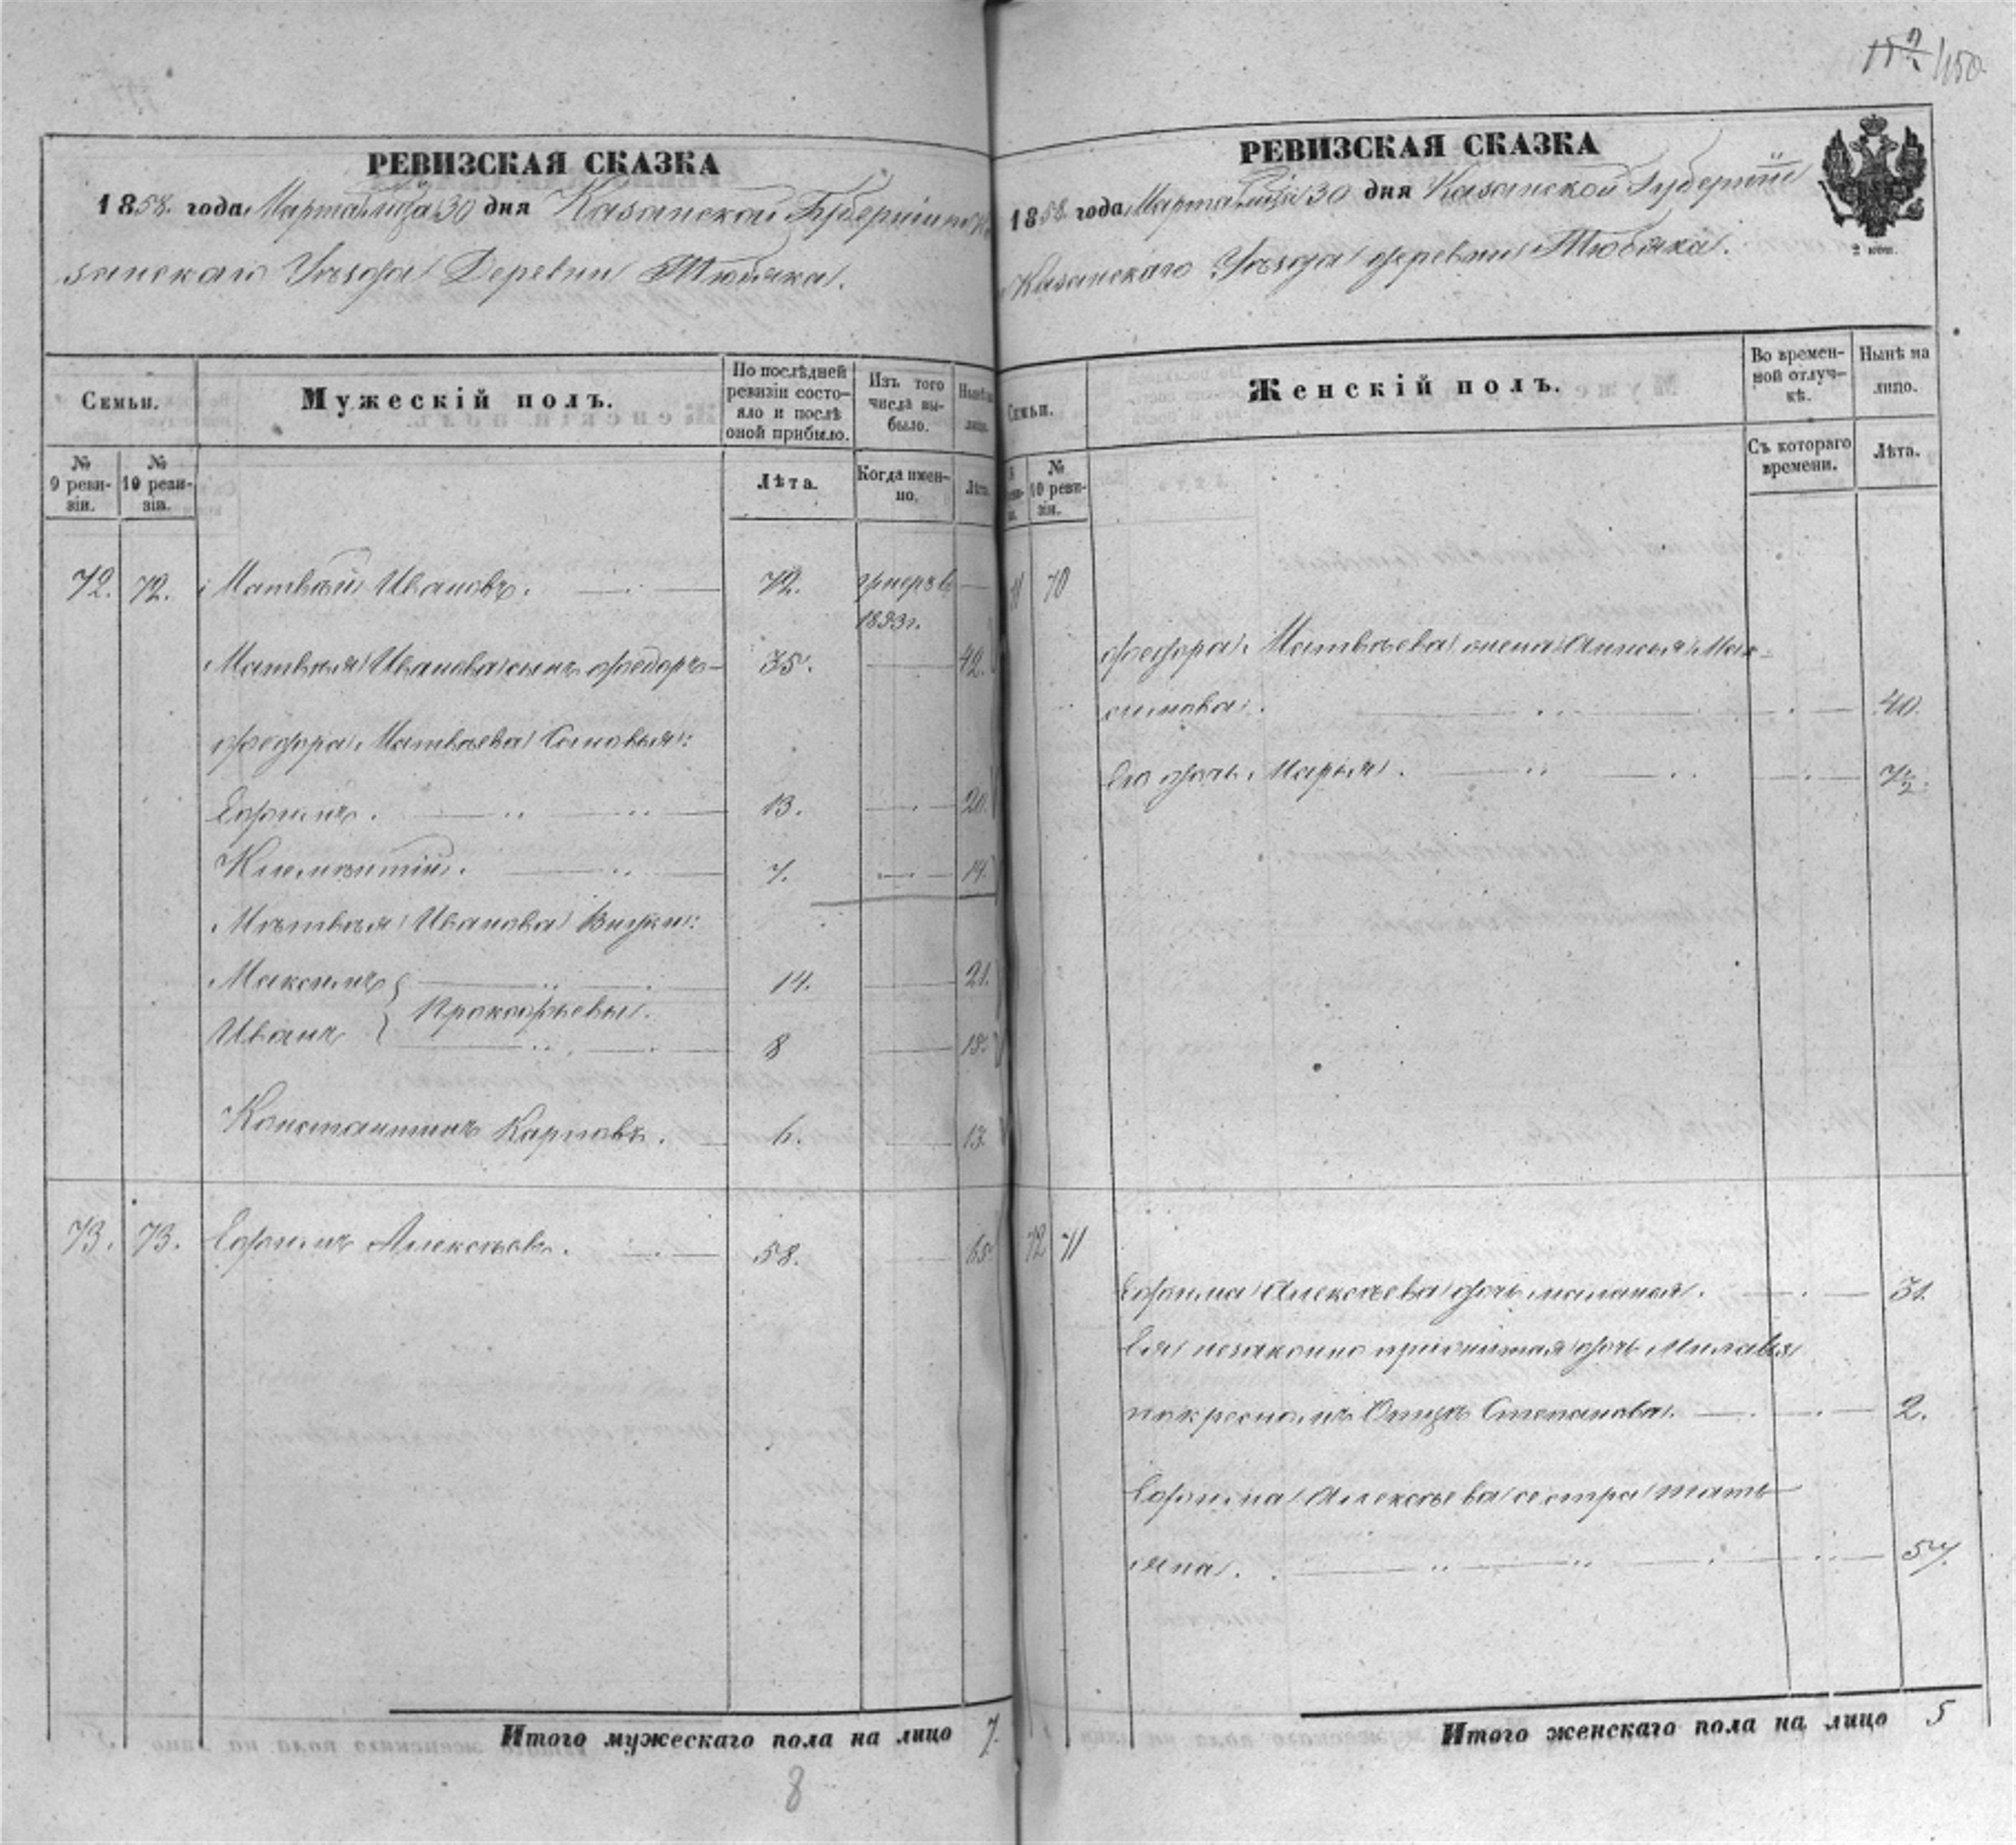 150
РЕВИЗСКАЯ СКАЗКА
1858. года Марта м-ца 30 дня Казанской Губернии Ка
занскаго Уѣзда Деревни Тюбяка.
Семьи.
Мужескій полъ.
По послѣдней ревизіи состояло и послѣ оной прибыло.
Изъ того числа выбыло.
Нынѣ на лицо.
№ 9 ревизіи.
№ 10 ревизіи.
Лѣта.
Когда именно.
Лѣта.
72. 72. Матвѣй Ивановъ. 72. умеръ в
1853 г.
Матвѣя Иванова сынъ Федоръ 35. 42.
Федора Матвѣева Сыновья:
Ефимъ. 13. 20.
Климентій. 7. 14.
Матвѣя Иванова Внуки:
Максимъ 14. 21.
Прокофьевы.
Иванъ 8 15.
Константинъ Карповъ. 6. 13.
73. 73. Ефимъ Алексѣевъ. 58. 65.
Итого мужескаго пола на лицо 7.
8
РЕВИЗСКАЯ СКАЗКА
1858 года Марта м-ца 30 дня Казанской Губерніи
Казанскаго Уѣзда деревни Тюбяка.
2 коп.
Семьи.
Женскій полъ.
Во временной отлучкѣ.
Нынѣ на лицо.
№ 10 ревизіи.
Съ котораго времени.
Лѣта.
71 70
Федора Матвѣева жена Анисья Мак-
симова. 40.
Его дочь Марья. 7½.
72 71
Ефима Алексѣева дочь Маланья. 31.
Ея незаконно прижитая дочь
по крестномъ Отцѣ Степанова. 2.
Ефима Алексѣева сестра Тать
яна. 57.
Итого женскаго пола на лицо 5